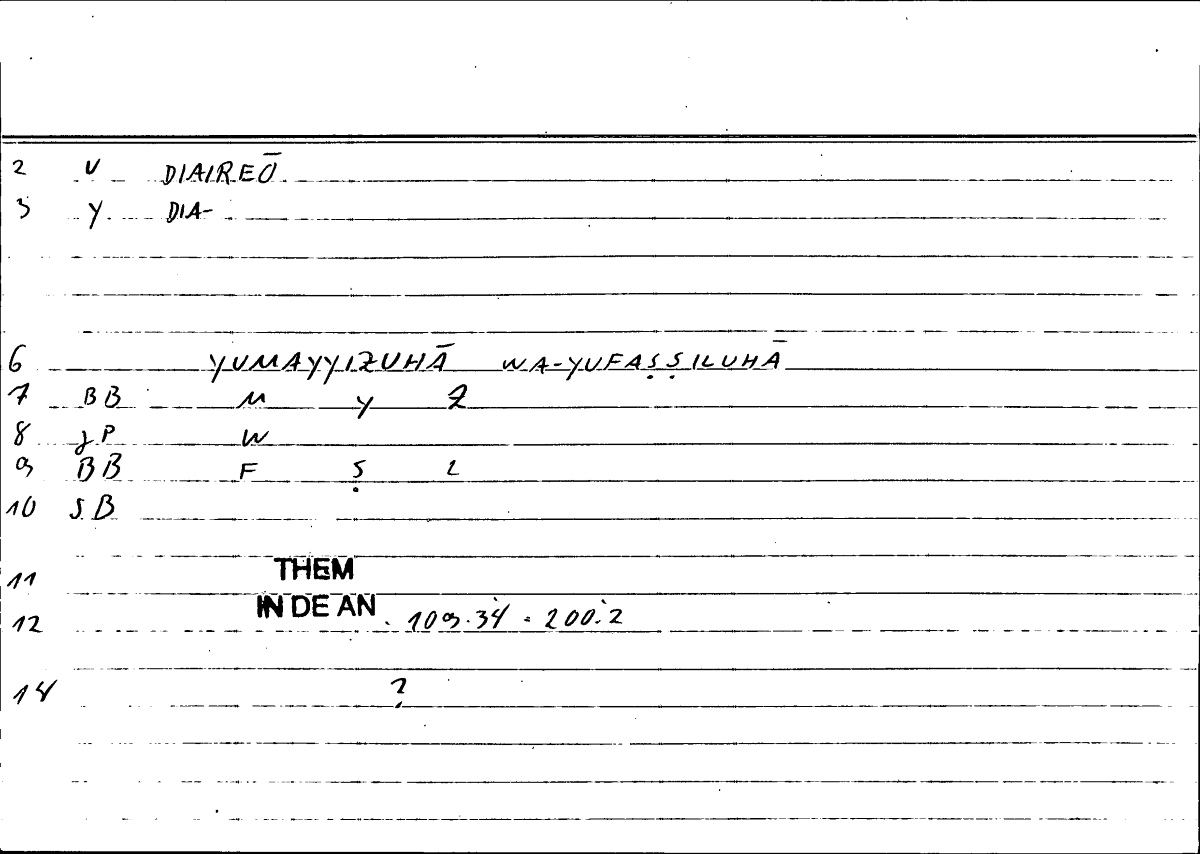 2 V DIAIREŌ
3 Y DIA-
6 YUMAYYIZUHĀ WA-YUFAṢṢILUHĀ
7 BB M Y Z
8 P W
9 BB F Ṣ L
10 SB
11 THEM
12 IN DE AN . 109.34 - 200.2
14 ?